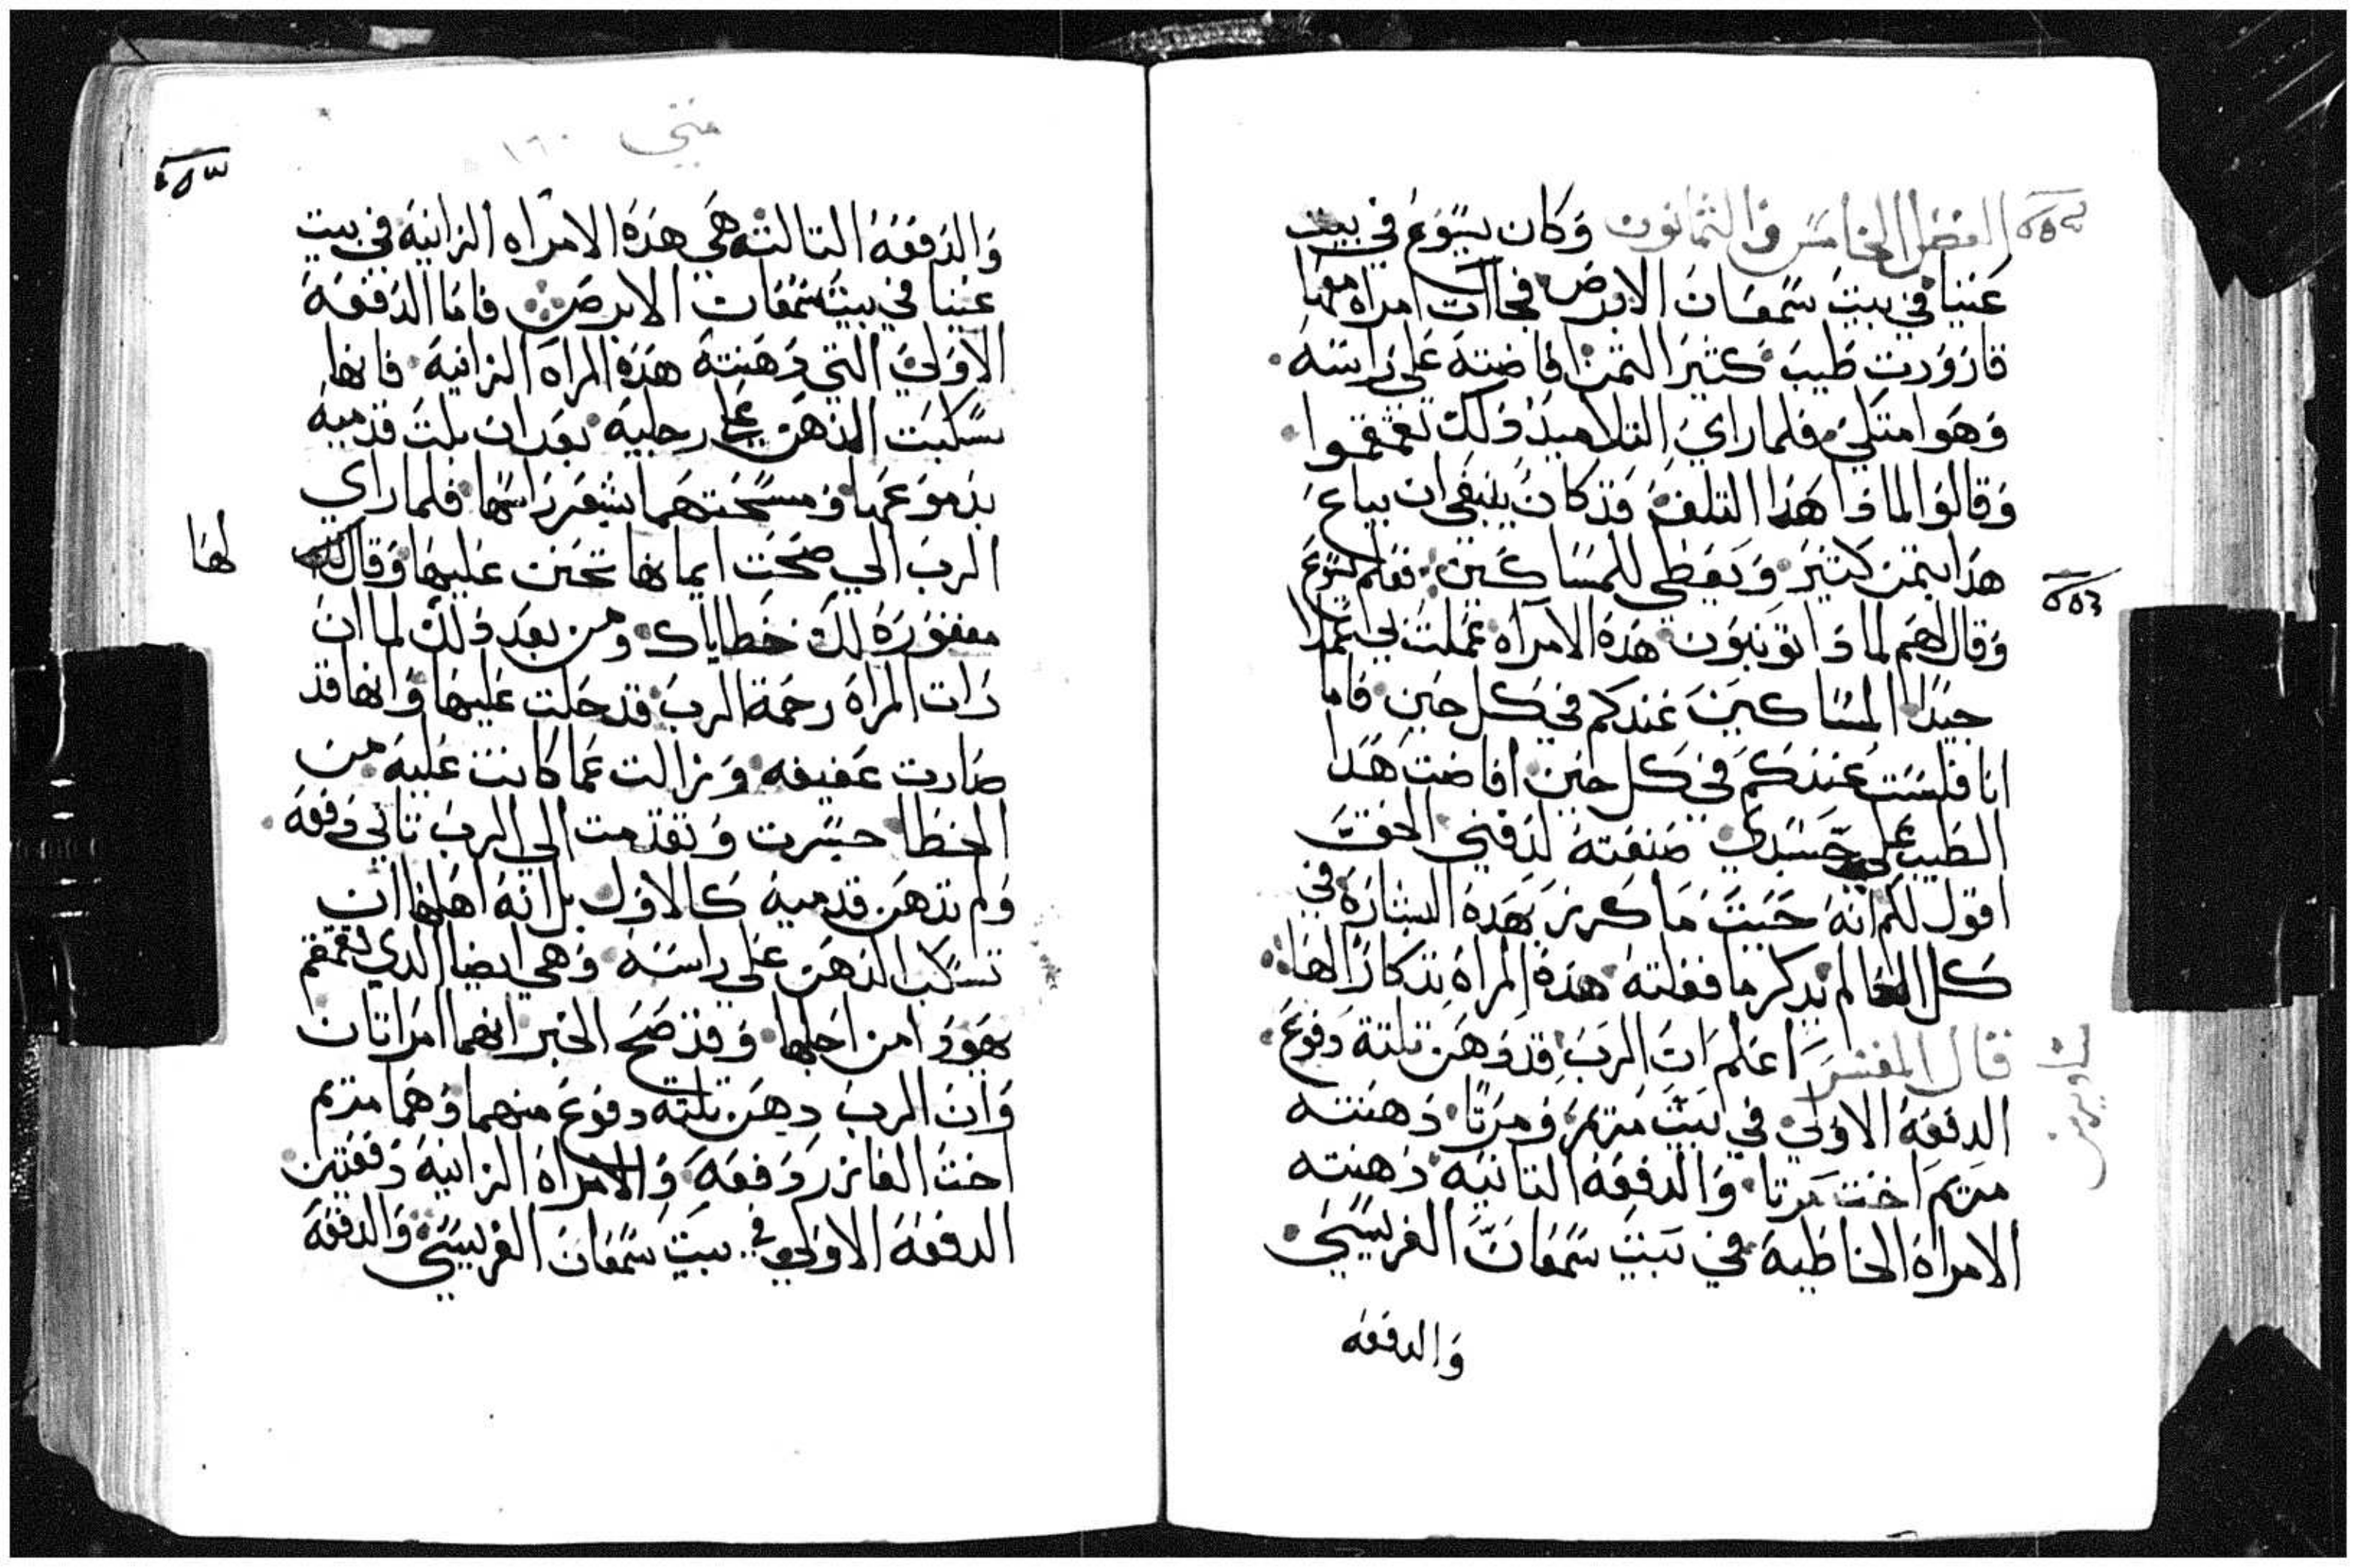 الفصل الخامس والثمانون وكان يسوع في بيت
عنيا في بيت سمعان الابرص فجاات امراه معها
قارورت طيب كثير الثمن افاضته على راسه
وهو متكي فلما راي التلاميد دلك تقمقموا
وقالوا لمادا هدا التلف وقد كان ينبغي ان يباع
هدا بتمن كتير ويعطى للمساكين فعلم يسوع
وقال لهم لما دا تونبون هده الامراه عملت بي عملا
جيدا المساكين عندكم في كل حين فاما
انا فلست عندكم في كل حين افاضت هدا
الطيب على جسدي صنعته لدفني الحق
اقول لكم انه حيت ما كرز بهده البشاره في
كل العالم يدكر ما فعلته هده المراه تدكارا لها
قال المفسر اعلم ان الرب قد دهن تلتة دفوع
الدفعه الاولى في بيت مريم ومرتا دهنته
مريم اخت مرتا والدفعه التانيه دهنته
الامراه الخاطيه في بيت سمعان الفريسي
والدفعه
ساويرس
متي
١٦٠
والدفعه التالته هي هده الامراه الزانيه في بيت
عنيا في بيت سمعان الابرص فاما الدفعه
الاولى التي دهنته هده المراه الزانيه فانها
سكبت الدهن على رجليه بعد ان بلت قدميه
بدموعها ومسحتهما بشعر راسها فلما راي
الرب الي صحت ايمانها تحنن عليها وقال
لها
مغفوره لك خطاياك ومن بعد دلك لما ان
رات المراه رحمة الرب قد حلت عليها وانها قد
صارت عفيفه وزالت عما كانت عليه من
الخطا جسرت وتقدمت الى الرب تاني دفعه
ولم تدهن قدميه كالاول بل انه اهلها ان
تسكب الدهن على راسه وهي ايضا الدي تقمقم
يهودا من اجلها وقد صح الخبر انهما امراتان
وان الرب دهن تلته دفوع منهما وهما مريم
اخت العازر دفعه والامراه الزانيه دفعتين
الدفعه الاولى في بيت سمعان الفريسي والدفعه